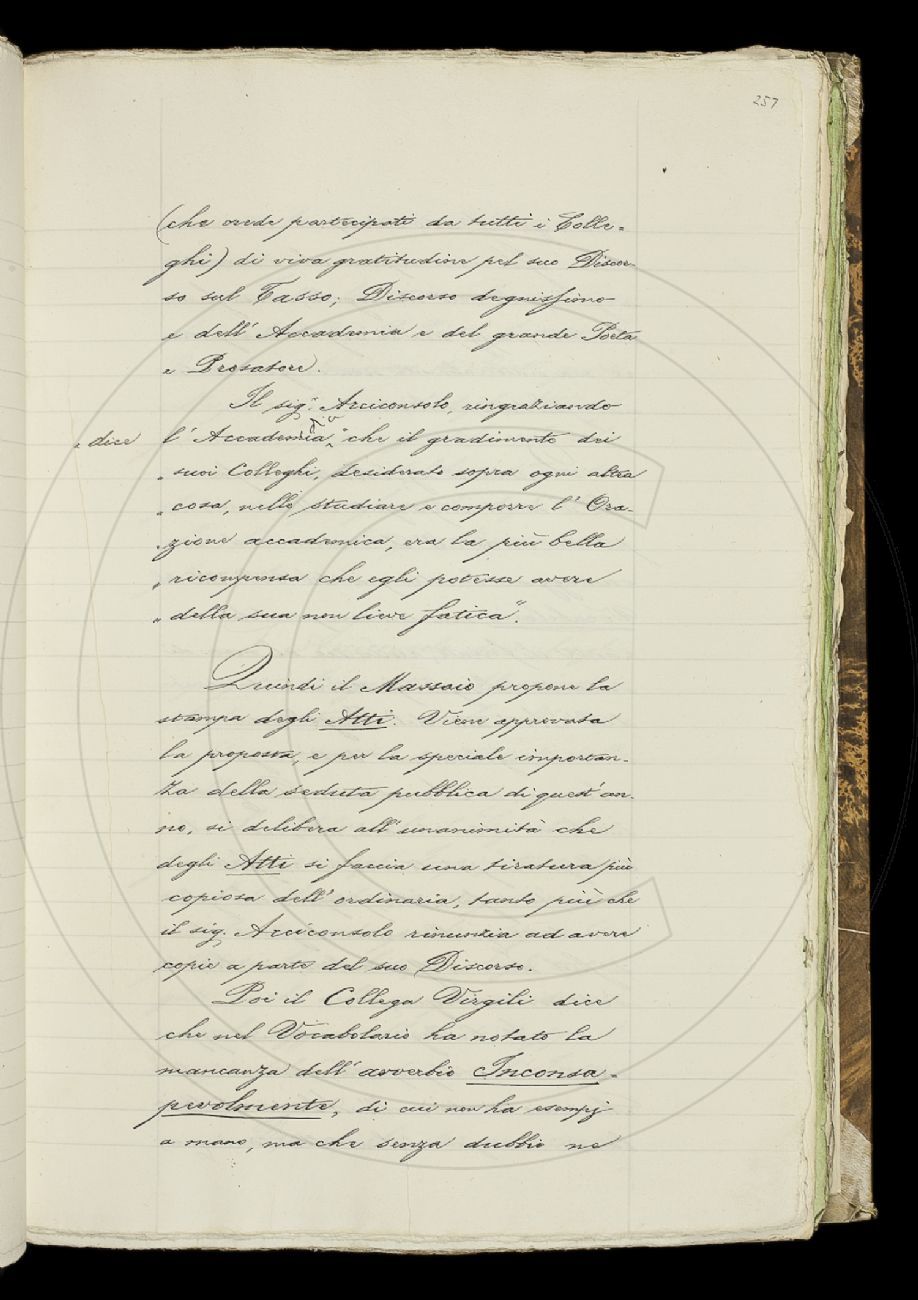 257
(che crede partecipati da tutti i Colle=
ghi) di viva gratitudine pel suo Discor-
so sul Tasso; Discorso degnissimo
e dell' Accademia e del grande Poeta
e Prosatore.
Il sig.r Arciconsolo, ringraziando
l' Accademia, „ che il gradimento dei
„ dice
„ suoi Colleghi, desiderato sopra ogni altra
„ cosa, nello studiare e comporre l' Ora-
„ zione accademica, era la più bella
„ ricompensa che egli potesse avere
„ della sua non lieve fatica".
Quindi il Massaio propone la
stampa degli Atti. Viene approvata
la proposta, e per la speciale importan-
za della seduta pubblica di quest'an-
no, si delibera all'unanimità che
degli Atti si faccia una tiratura più
copiosa dell' ordinaria, tanto più che
il sig. Arciconsolo rinunzia ad avere
copie a parte del suo Discorso.
Poi il Collega Virgili dice
che nel Vocabolario ha notato la
mancanza dell' avverbio Inconsa=
pevolmente, di cui non ha esempj
a mano, ma che senza dubbio ne